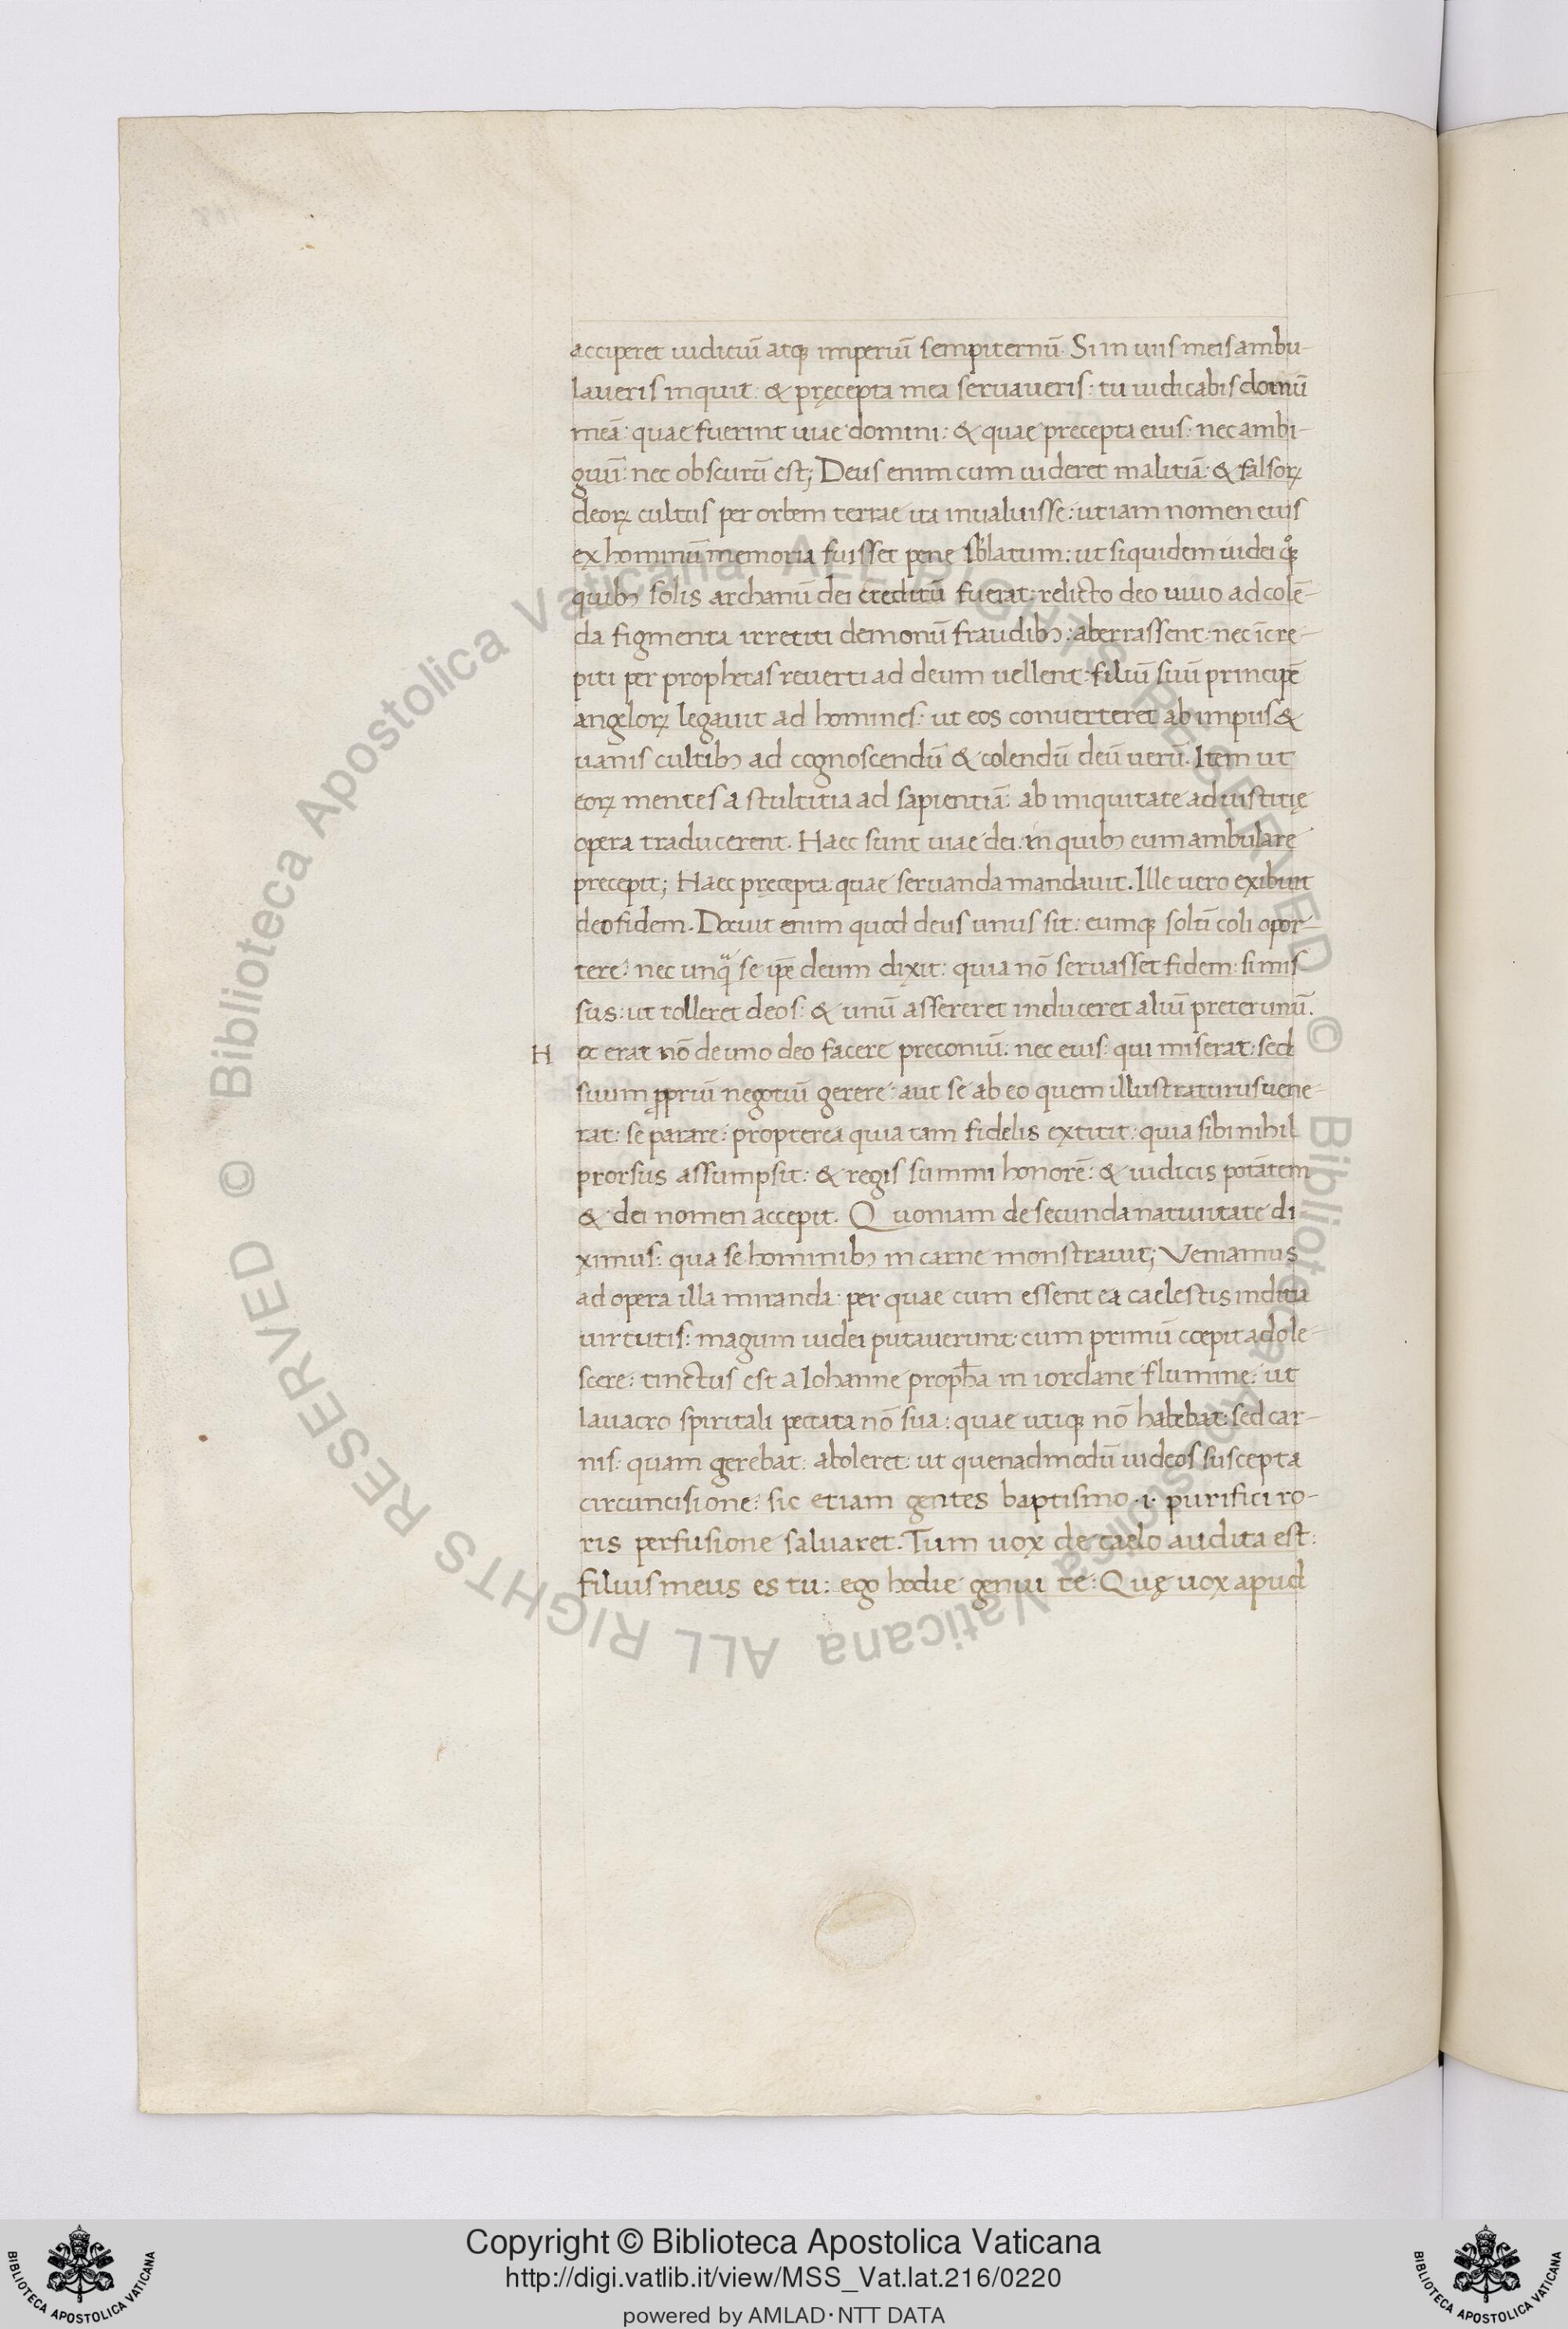 acciperet iudiciū atq; imperiū sempiternū. Si in uiis meis ambu-
laueris inquit: & pręcepta mea seruaueris: tu iudicabis domū
meā: quae fuerint uiae domini: & quae precepta eius: nec ambi-
guū: nec obscurū est; Deus enim cum uideret malitiā: & falsoꝝ
deoꝝ cultus per orbem terrae ita inualuisse: ut iam nomen eius
ex hominū memoria fuisset pene sblatum: ut siquidem iudei qͦꝫ
quibꝫ solis archanū dei creditū fuerat: relicto deo uiuo ad colē-
da figmenta irretiti demonū fraudibꝫ: aberrassent: nec īcre-
piti per prophetas reuerti ad deum uellent: filiū suū principē
angeloꝝ legauit ad homines: ut eos conuerteret ab impiis &
uanis cultibꝫ ad cognoscendū & colendū deū uerū. Item ut
eoꝝ mentes a stultitia ad sapientiā: ab iniquitate ad iustitię
opera traducerent. Haec sunt uiae dei: in quibꝫ eum ambulare
precepit; Haec pręcepta quae seruanda mandauit. Ille uero exibuit
deo fidem. Docuit enim quod deus unus sit: eumq; solū coli opor-
tere: nec unqᵃ se ip̄e deum dixit: quia nō seruasset fidem: si mis
sus: ut tolleret deos: & unū assereret induceret aliū preter unū.
H oc erat nō de uno deo facere preconiū. nec eius: qui miserat: sed
suum ꝓpriū negotiū gerere: aut se ab eo quem illustraturus uene-
rat: separare: propterea quia tam fidelis extitit: quia sibi nihil
prorsus assumpsit: & regis summi honorē: & iudicis potātem
& dei nomen accepit. Quoniam de secunda natiuitate di
ximus: qua se hominibꝫ in carne monstrauit; Veniamus
ad opera illa miranda: per quae cum essent ea caelestis inditia
uirtutis: magum iudei putauerunt: cum primū cœpit adole-
scere: tinctus est a Iohanne proph̄a in iordane flumine: ut
lauacro spiritali peccata nō sua: quae utiq; nō habebat: sed car-
nis: quam gerebat: aboleret: ut quenadmodū iudeos suscepta
circuncisione: sic etiam gentes baptismo .i. purifici ro-
ris perfusione saluaret. Tum uox de caelo audita est:
filius meus es tu: ego hodie genui te: Quę uox apud
© Biblioteca Apostolica Vaticana ALL RIGHTS RESERVED © Biblioteca Apostolica Vaticana ALL RIGHTS RESERVED
Copyright © Biblioteca Apostolica Vaticana
http://digi.vatlib.it/view/MSS_Vat.lat.216/0220
powered by AMLAD·NTT DATA
BIBLIOTECA APOSTOLICA VATICANA
BIBLIOTECA APOSTOLICA VATICANA